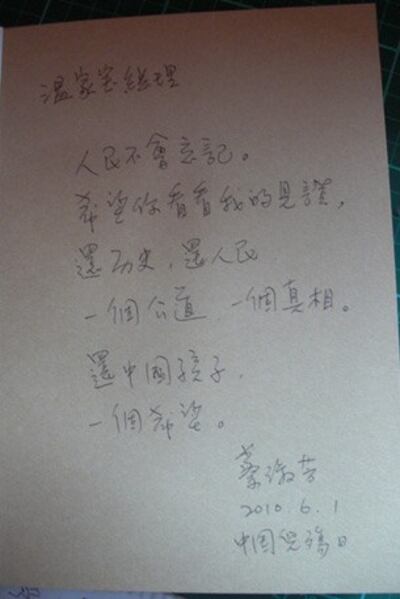 溫家宝總理
人民不會忘記。
希望你看看我的見證,
還历史,還人民
一個公道 一個真相。
還中國孩子,
一個希望。
蔡淑芳
2010.6.1
中国兒日